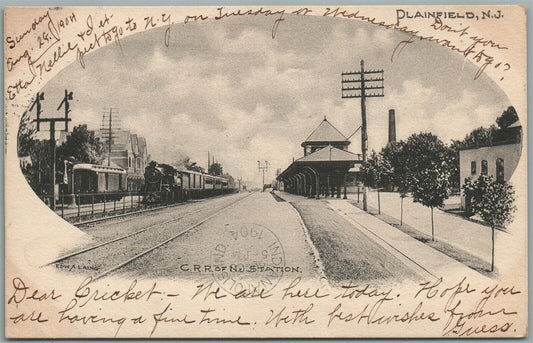 PLAINFIELD, N.J.
Sunday
Aug. 28, 1904
Etta, Nellie & I expect to go to N.Y. on Tuesday or Wednesday. Don't you want to go?
EDW. A. LAING
C.R.R. OF N.J. STATION.
1904
IND.
Dear Cricket. - We are here today. Hope you
are having a fine time. With best wishes from
Guess.